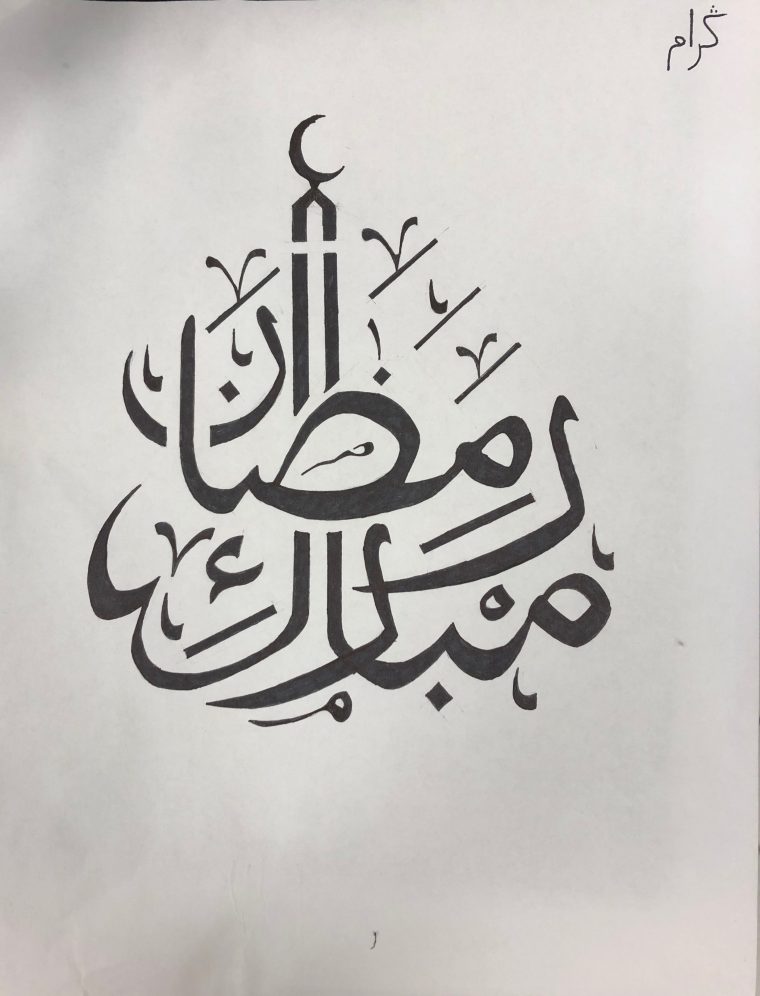 ڭرام
رمضان
مبارك